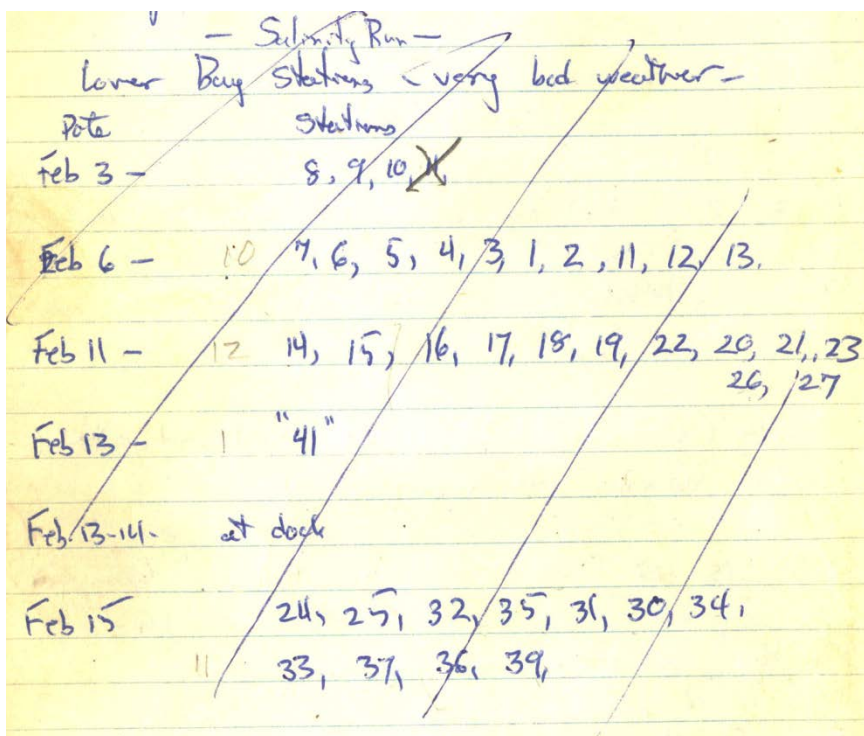 — Salinity Run —
Lower Bay Stations - very bad weather -
Date Stations
Feb 3 - 8, 9, 10, 11,
Feb 6 - 10 7, 6, 5, 4, 3, 1, 2, 11, 12, 13.
Feb 11 - 12 14, 15, 16, 17, 18, 19, 22, 20, 21, 23
26, 27
Feb 13 - 1 "41"
Feb. 13-14 - at dock
Feb 15 24, 25, 32, 35, 31, 30, 34,
11 33, 37, 36, 39,